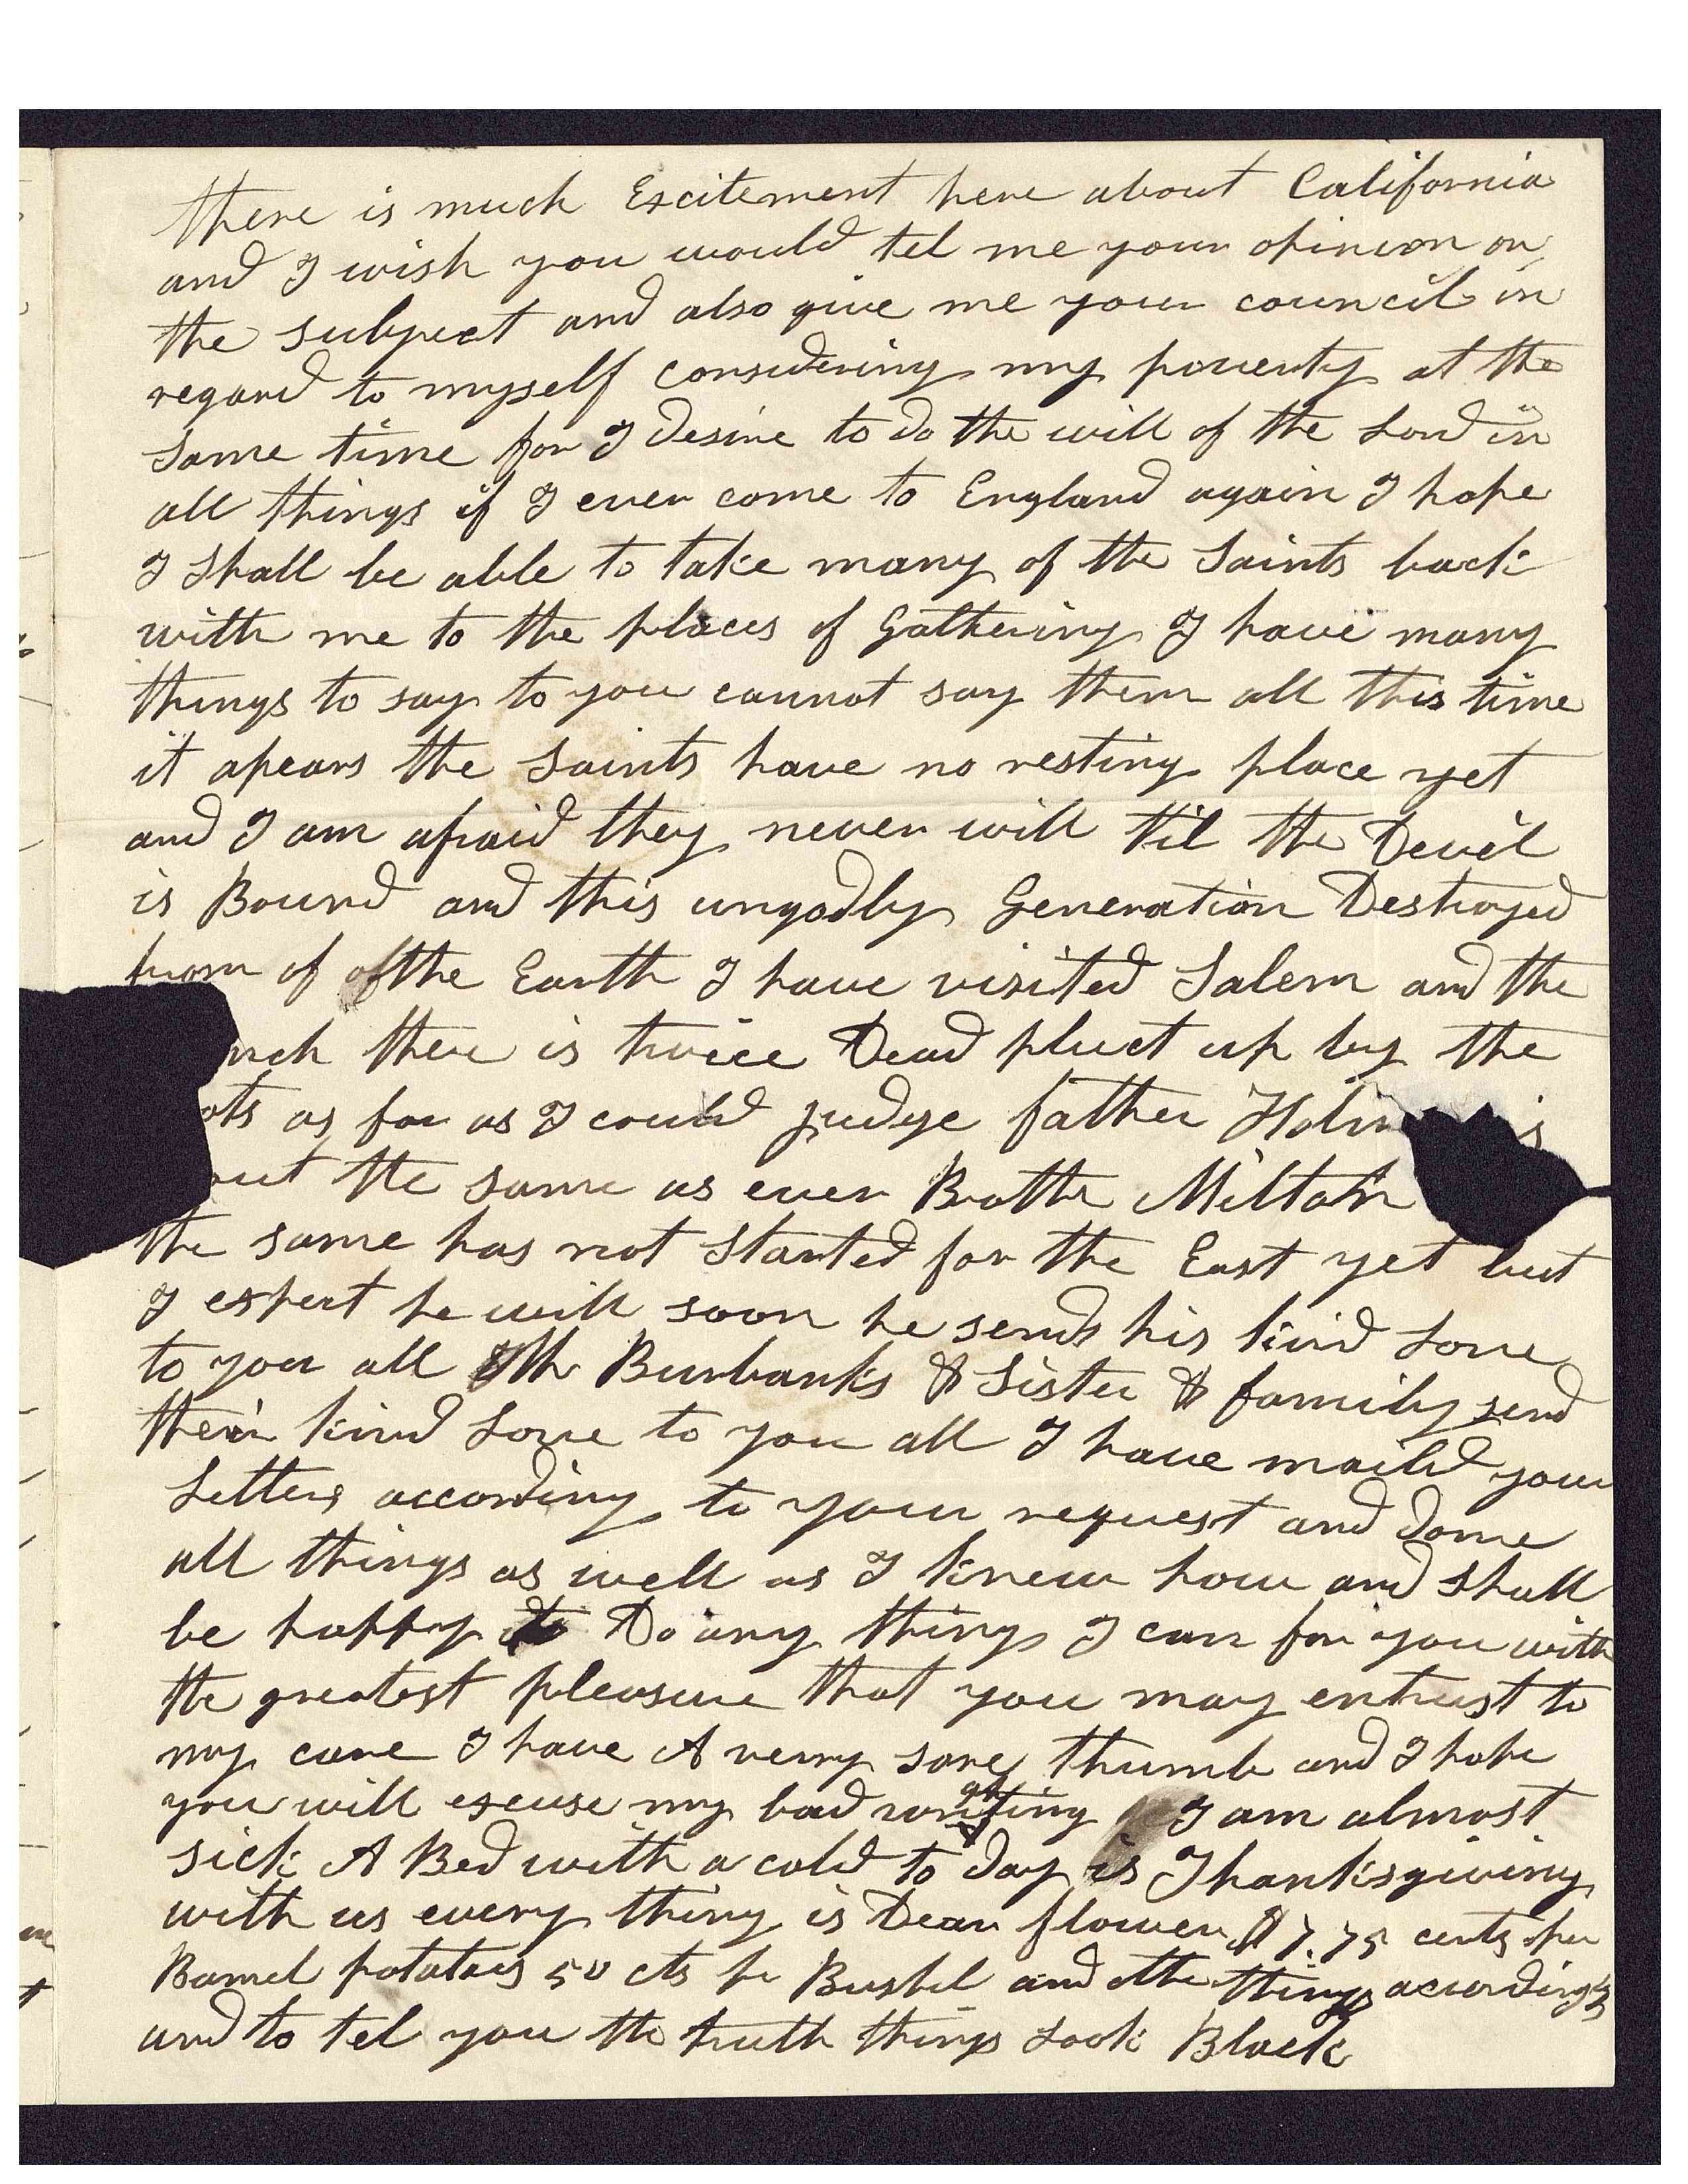 there is much Excitement here about California
and I wish you would tel me your opinion on
the subject and also give me your council in
regard to myself considering my poverty at the
same time for I desire to do the will of the Lord in
all things if I ever come to England again I hope
I shall be able to take many of the Saints back
with me to the places of Gathering I have many
things to say to you cannot say them all this time
it apears the Saints have no resting place yet
and I am afraid they never will til the Devil
is Bound and this ungodly Generation Destroyed
from of of the Earth I have visited Salem and the
nch there is twice Dead pluct up by the
ots as far as I could judge father Holm is
out the same as ever Brother Milton
the same has not started for the East yet but
I expect he will soon he sends his kind Love
to you all Burbanks & Sister & family send
their kind Love to you all I have maild your
Letters according to your request and done
all things as well as I knew how and shall
be happy to Do any thing I can for you with
the greatest pleasure that you may entrust to
my care I have A verry sore thumb and I hope
you will excuse my bad writing I am almost
sick A Bed with a cold to day is Thanksgiving
with us every thing is Dear flower $7.75 cents per
Barrel potatoes 50 cts pr Bushel and other things acordingly
and to tel you the truth things Look Black